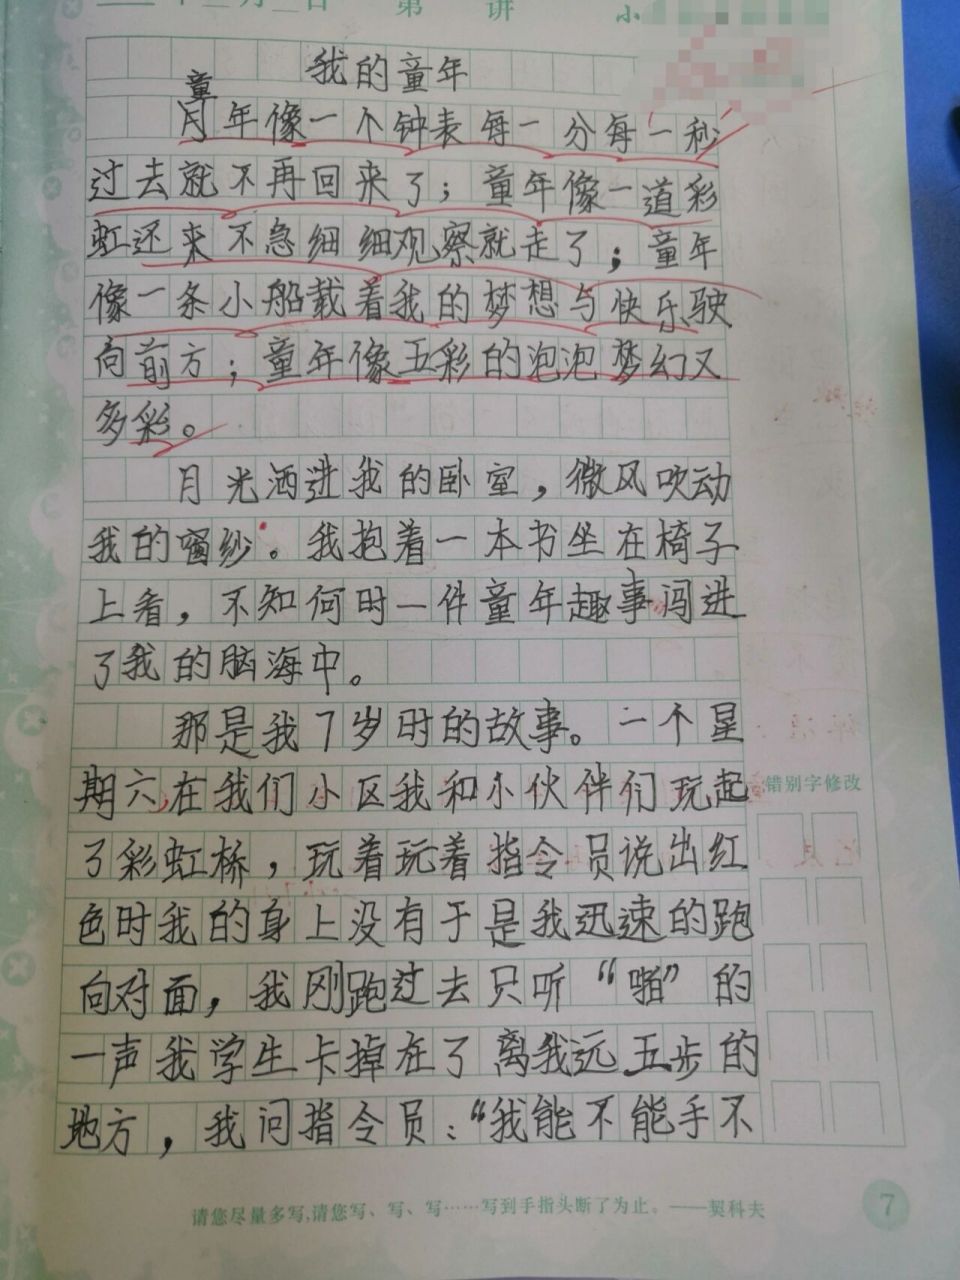 月 日 第 讲 小
我的童年
童
月年像一个钟表每一分每一秒
过去就不再回来了；童年像一道彩
虹还来不急细细观察就走了；童年
像一条小船载着我的梦想与快乐驶
向前方；童年像五彩的泡泡梦幻又
多彩。
月光洒进我的卧室，微风吹动
我的窗纱。我抱着一本书坐在椅子
上看，不知何时一件童年趣事闯进
了我的脑海中。
那是我7岁时的故事。一个星
期六在我们小区我和小伙伴们玩起
了彩虹桥，玩着玩着指令员说出红
色时我的身上没有于是我迅速的跑
向对面，我刚跑过去只听“啪”的
一声我学生卡掉在了离我远五步的
地方，我问指令员：“我能不能手不
错别字修改
请您尽量多写,请您写、写、写……写到手指头断了为止。——契科夫
7